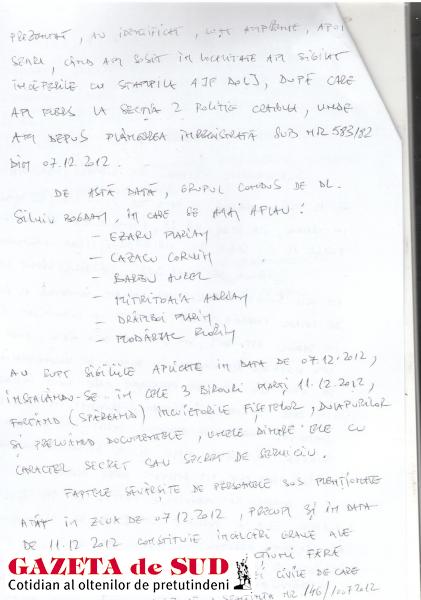 PREZENTATĂ, AU IDENTIFICAT, LUAT AMPRENTE, APOI
SEARA, CÂND AM SOSIT ÎN LOCALITATE AM SIGILAT
ÎNCĂPERILE CU ȘTAMPILA AJF DOLJ, DUPĂ CARE
AM MERS LA SECȚIA 2 POLIȚIE CRAIOVA, UNDE
AM DEPUS PLÂNGEREA ÎNREGISTRATĂ SUB NR 583/82
DIN 07.12.2012.
DE ASTĂ DATĂ, GRUPUL CONDUS DE DL.
Silviu BOGDAN, ÎN CARE SE MAI AFLAU:
- EZARU MARIAN
- CAZACU CORNIN
- BARBU AUREL
- MITRITONIA ADRIAN
- DRĂMBOI MARIN
- FLORIN
AU RUPT SIGILIILE APLICATE ÎN DATA DE 07.12.2012,
INSTALÂNDU-SE ÎN CELE 3 BIROURI MARȚI 11.12.2012,
FORȚÂND (SPĂRGÂND) ÎNCUIETORILE FIȘETELOR, DULAPURILOR
ȘI PRELUÂND DOCUMENTELE, UNELE DINTRE ELE CU
CARACTER SECRET SAU SECRET DE SERVICIU.
FAPTELE SĂVÂRȘITE DE PERSOANELE SUS MENȚIONATE
ATÂT ÎN ZIUA DE 07.12.2012, PRECUM ȘI ÎN DATA
DE 11.12.2012 CONSTITUIE ÎNCĂLCĂRI GRAVE ALE
FĂRĂ
CIVILE DE CARE
NR 146/
GAZETA de SUD
Cotidian al oltenilor de pretutindeni